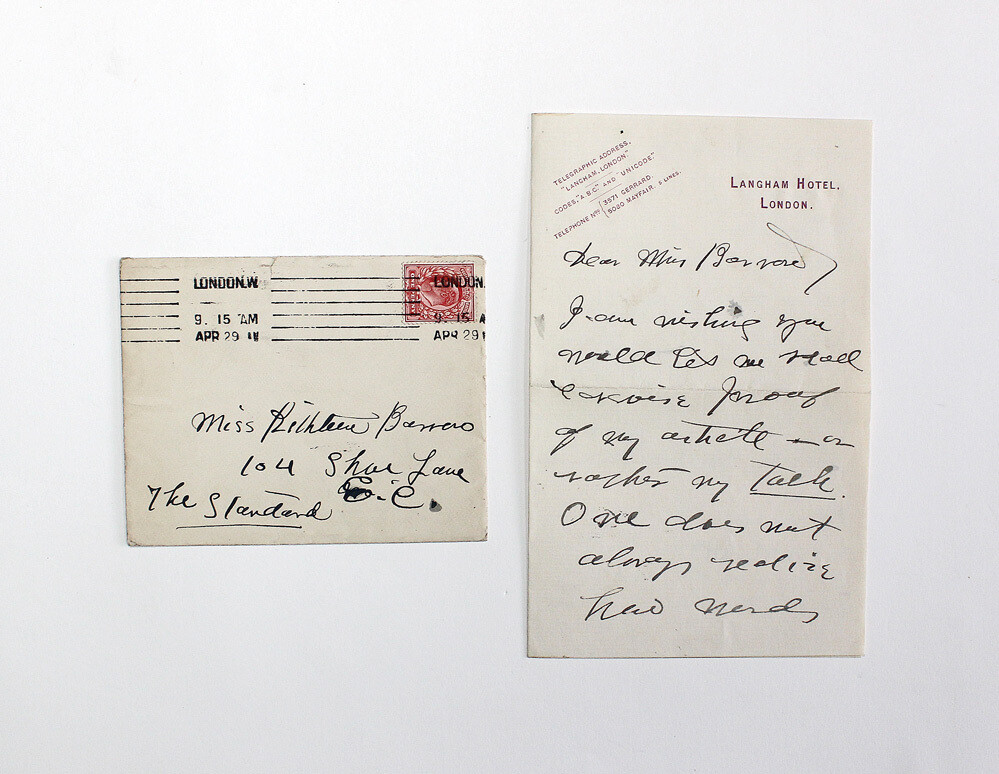 LONDON.W
9. 15 AM
APR 29
LONDON.
9. 15 A
APR 29
Miss Kathleen Barrow
104 Shoe Lane
E.C.
The Standard
TELEGRAPHIC ADDRESS,
"LANGHAM, LONDON."
CODES, "A.B.C." AND "UNICODE."
TELEPHONE Nos. 3571 GERRARD.
5080 MAYFAIR. 5 LINES.
LANGHAM HOTEL,
LONDON.
Dear Miss Barrow,
I am wishing you
would let me read
& revise proof
of my article — or
rather my talk.
One does not
always realize
how words